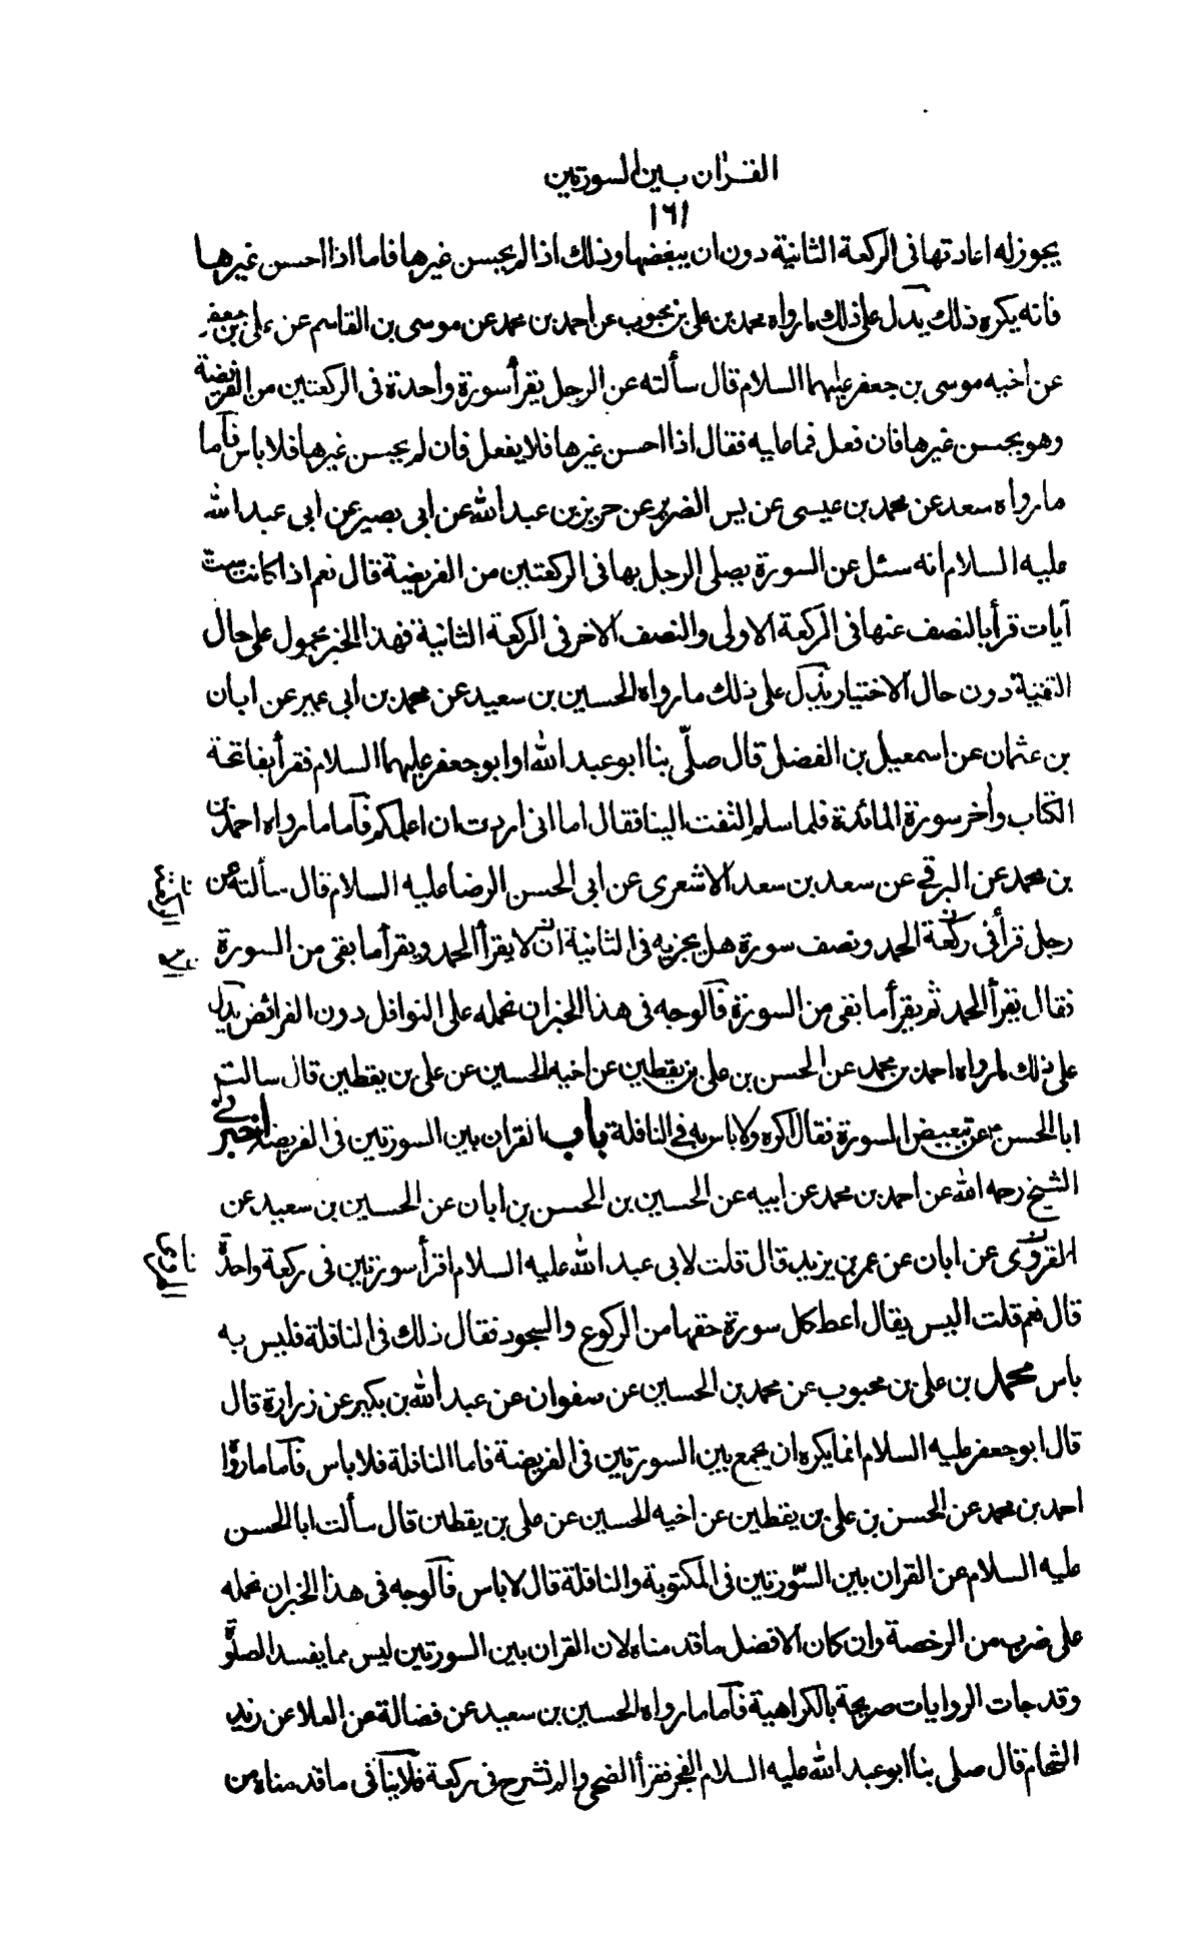 القران بين السورتين
١٦١
يجوز له اعادتها فى الركعة الثانية دون ان يبغضها وذلك اذا لم يحسن غيرها فاما اذا احسن غيرها
فانه يكره ذلك يدل على ذلك ما رواه محمد بن على بن محبوب عن احمد بن محمد عن موسى بن القاسم عن على بن جعفر
عن اخيه موسى بن جعفر عليهما السلام قال سألته عن الرجل يقرأ سورة واحدة فى الركعتين من الفريضة
وهو يحسن غيرها فان فعل فما عليه فقال اذا احسن غيرها فلا يفعل فان لم يحسن غيرها فلا باس فاما
ما رواه سعد عن محمد بن عيسى عن يس الضرير عن حريز بن عبد الله عن ابى بصير عن ابى عبد الله
عليه السلام انه سئل عن السورة يصلى الرجل بها فى الركعتين من الفريضة قال نعم اذا كانت ست
آيات قرأ بالنصف عنها فى الركعة الاولى والنصف الاخر فى الركعة الثانية فهذا الخبر محمول على حال
التقية دون حال الاختيار يدل على ذلك ما رواه الحسين بن سعيد عن محمد بن ابى عمير عن ابان
بن عثمان عن اسمعيل بن الفضل قال صلّى بنا ابو عبد الله او ابو جعفر عليهما السلام فقرأ بفاتحة
الكتاب وأخر سورة المائدة فلما سلم التفت الينا فقال اما انى اردت ان اعلمكم فاما ما رواه احمد بن
بن محمد عن البرقى عن سعد بن سعد الاشعرى عن ابى الحسن الرضا عليه السلام قال سألته عن
رجل قرأ فى ركعة الحمد ونصف سورة هل يجزيه فى الثانية ان لا يقرأ الحمد ويقرأ ما بقى من السورة
فقال يقرأ الحمد ثم يقرأ ما بقى من السورة فالوجه فى هذا الخبر ان نحمله على النوافل دون الفرائض يدل
على ذلك ما رواه احمد بن محمد عن الحسن بن على بن يقطين عن اخيه الحسين عن على بن يقطين قال سالت
ابا الحسن ع عن تبعيض السورة فقال اكره ولا باس به فى النافلة باب القران بين السورتين فى الفريضة اخبرنى
الشيخ رحمه الله عن احمد بن محمد عن ابيه عن الحسين بن الحسن بن ابان عن الحسين بن سعيد عن
القروى عن ابان عن عمر بن يزيد قال قلت لابى عبد الله عليه السلام اقرأ سورتين فى ركعة واحدة
قال نعم قلت اليس يقال اعط كل سورة حقها من الركوع والسجود فقال ذلك فى النافلة فليس به
باس محمد بن على بن محبوب عن محمد بن الحسين عن صفوان عن عبد الله بن بكير عن زرارة قال
قال ابو جعفر عليه السلام انما يكره ان يجمع بين السورتين فى الفريضة فاما النافلة فلا باس فاما ما رواه
احمد بن محمد عن الحسن بن على بن يقطين عن اخيه الحسين عن على بن يقطين قال سألت ابا الحسن
عليه السلام عن القران بين السّورتين فى المكتوبة والنافلة قال لا باس فالوجه فى هذا الخبر ان نحمله
على ضرب من الرخصة وان كان الافضل ما قدمناه لان القران بين السورتين ليس مما يفسد الصلوة
وقد جات الروايات صريحة بالكراهية فاما ما رواه الحسين بن سعيد عن فضالة عن العلا عن زيد
الشحام قال صلى بنا ابو عبد الله عليه السلام الفجر فقرأ الضحى والم نشرح فى ركعة فلا ينافى ما قدمناه من